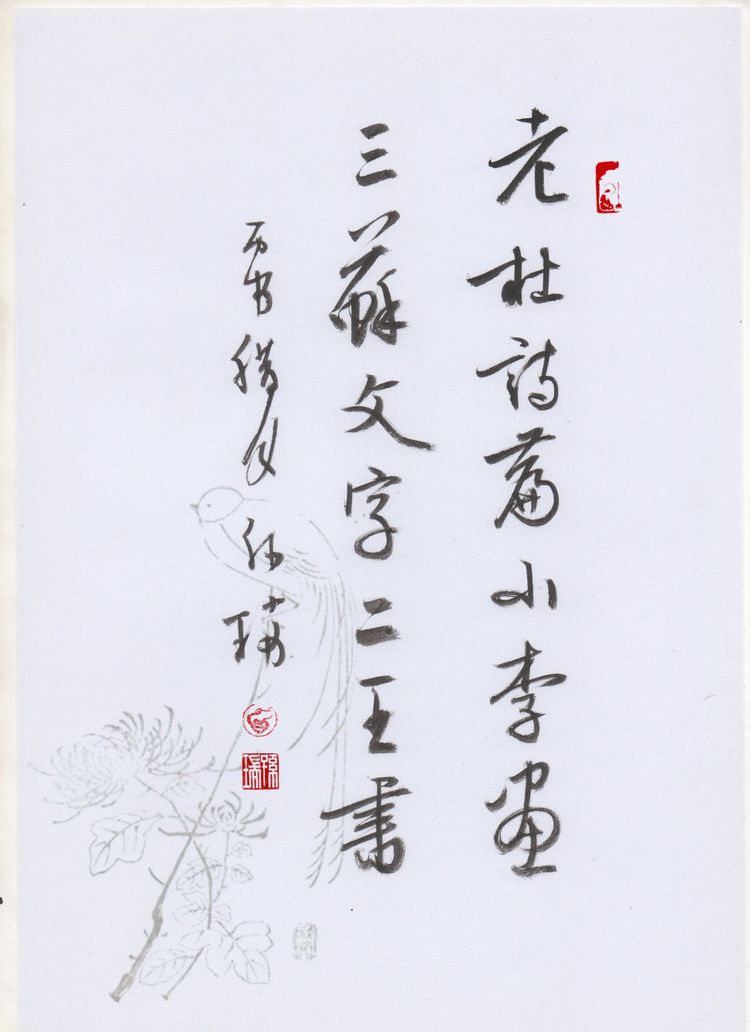 老杜詩篇小李畫
三蘇文字二王書
丙申腊月